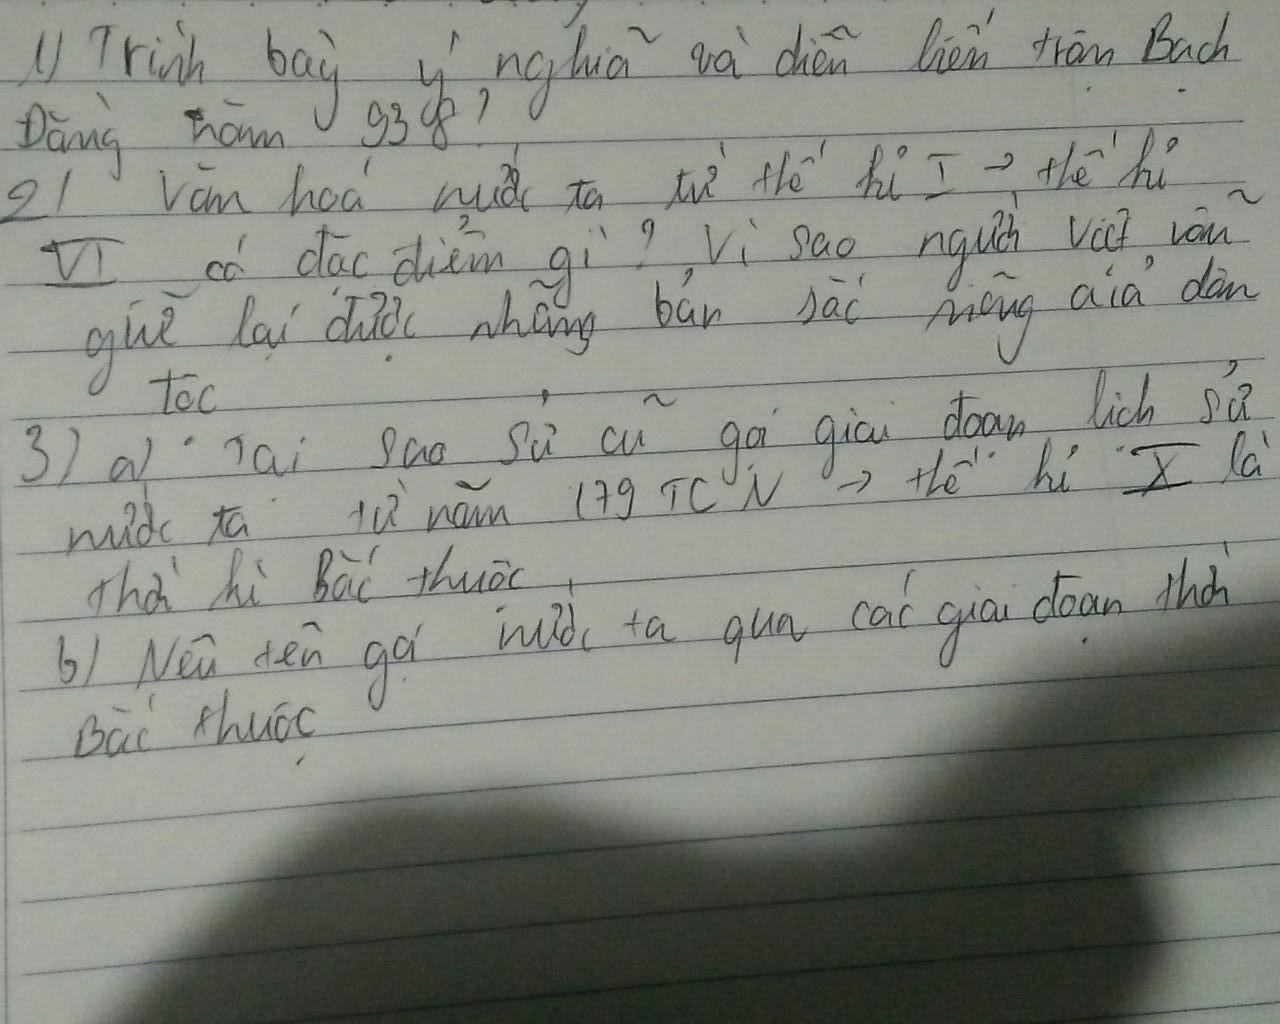 1) Trình bày ý nghĩa và diễn biến trận Bạch
Đằng năm 938?
2) Văn hoá nước ta từ thế kỉ I → thế kỉ
VI có đặc điểm gì? Vì sao người việt vẫn
giữ lại được những bản sắc riêng của dân
tộc
3) a) Tại sao sử cũ gọi giai đoạn lịch sử
nước ta từ năm 179 TCN → thế kỉ X là
thời kì Bắc thuộc
b) Nêu tên gọi nước ta qua các giai đoạn thời
Bắc thuộc